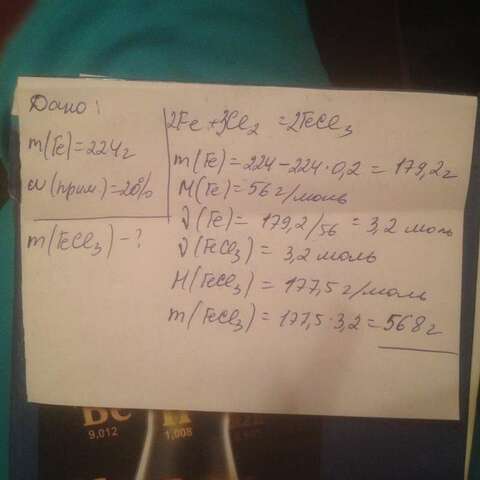 Дано:
m(Fe)=224г
w(прим)=20%
m(FeCl₃)-?
2Fe+3Cl₂ =2FeCl₃
m(Fe)=224-224·0,2 = 179,2г
M(Fe)=56г/моль
ν(Fe)= 179,2/56 = 3,2 моль
ν(FeCl₃) = 3,2 моль
M(FeCl₃) = 177,5 г/моль
m(FeCl₃) = 177,5·3,2=568г
9,012
1,008